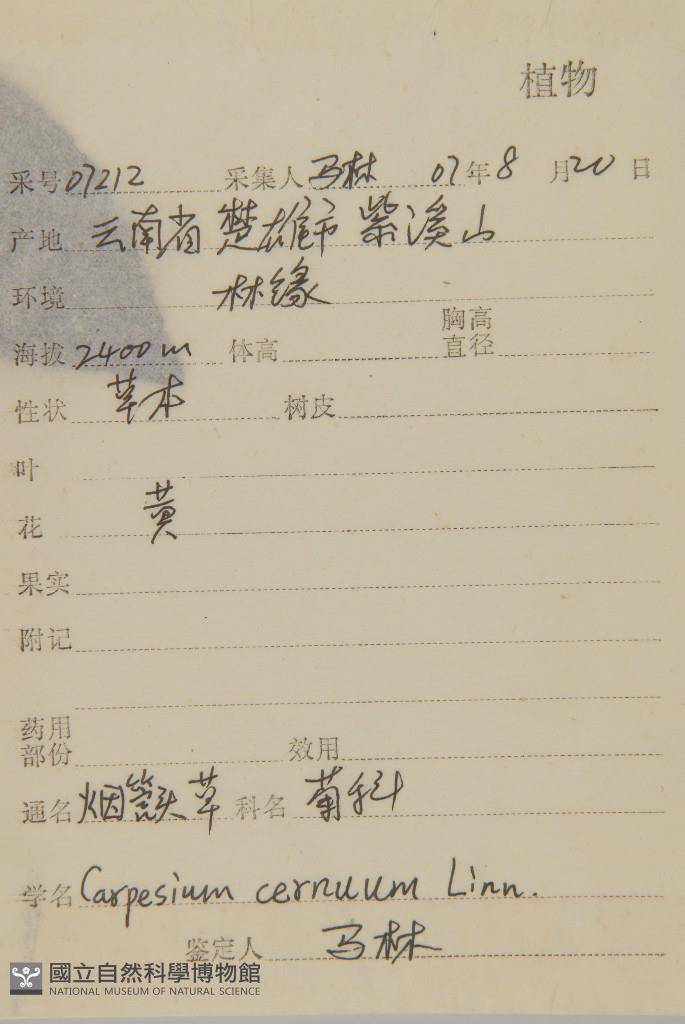 植物
采号 07212 采集人 马林 07年8月20日
产地 云南省楚雄市紫溪山
环境 林缘
海拔 2400m 体高 胸高直径
性状 草本 树皮
叶
花 黄
果实
附记
药用部份 效用
通名 烟管头草 科名 菊科
学名 Carpesium cernuum Linn.
鉴定人 马林
國立自然科學博物館
NATIONAL MUSEUM OF NATURAL SCIENCE